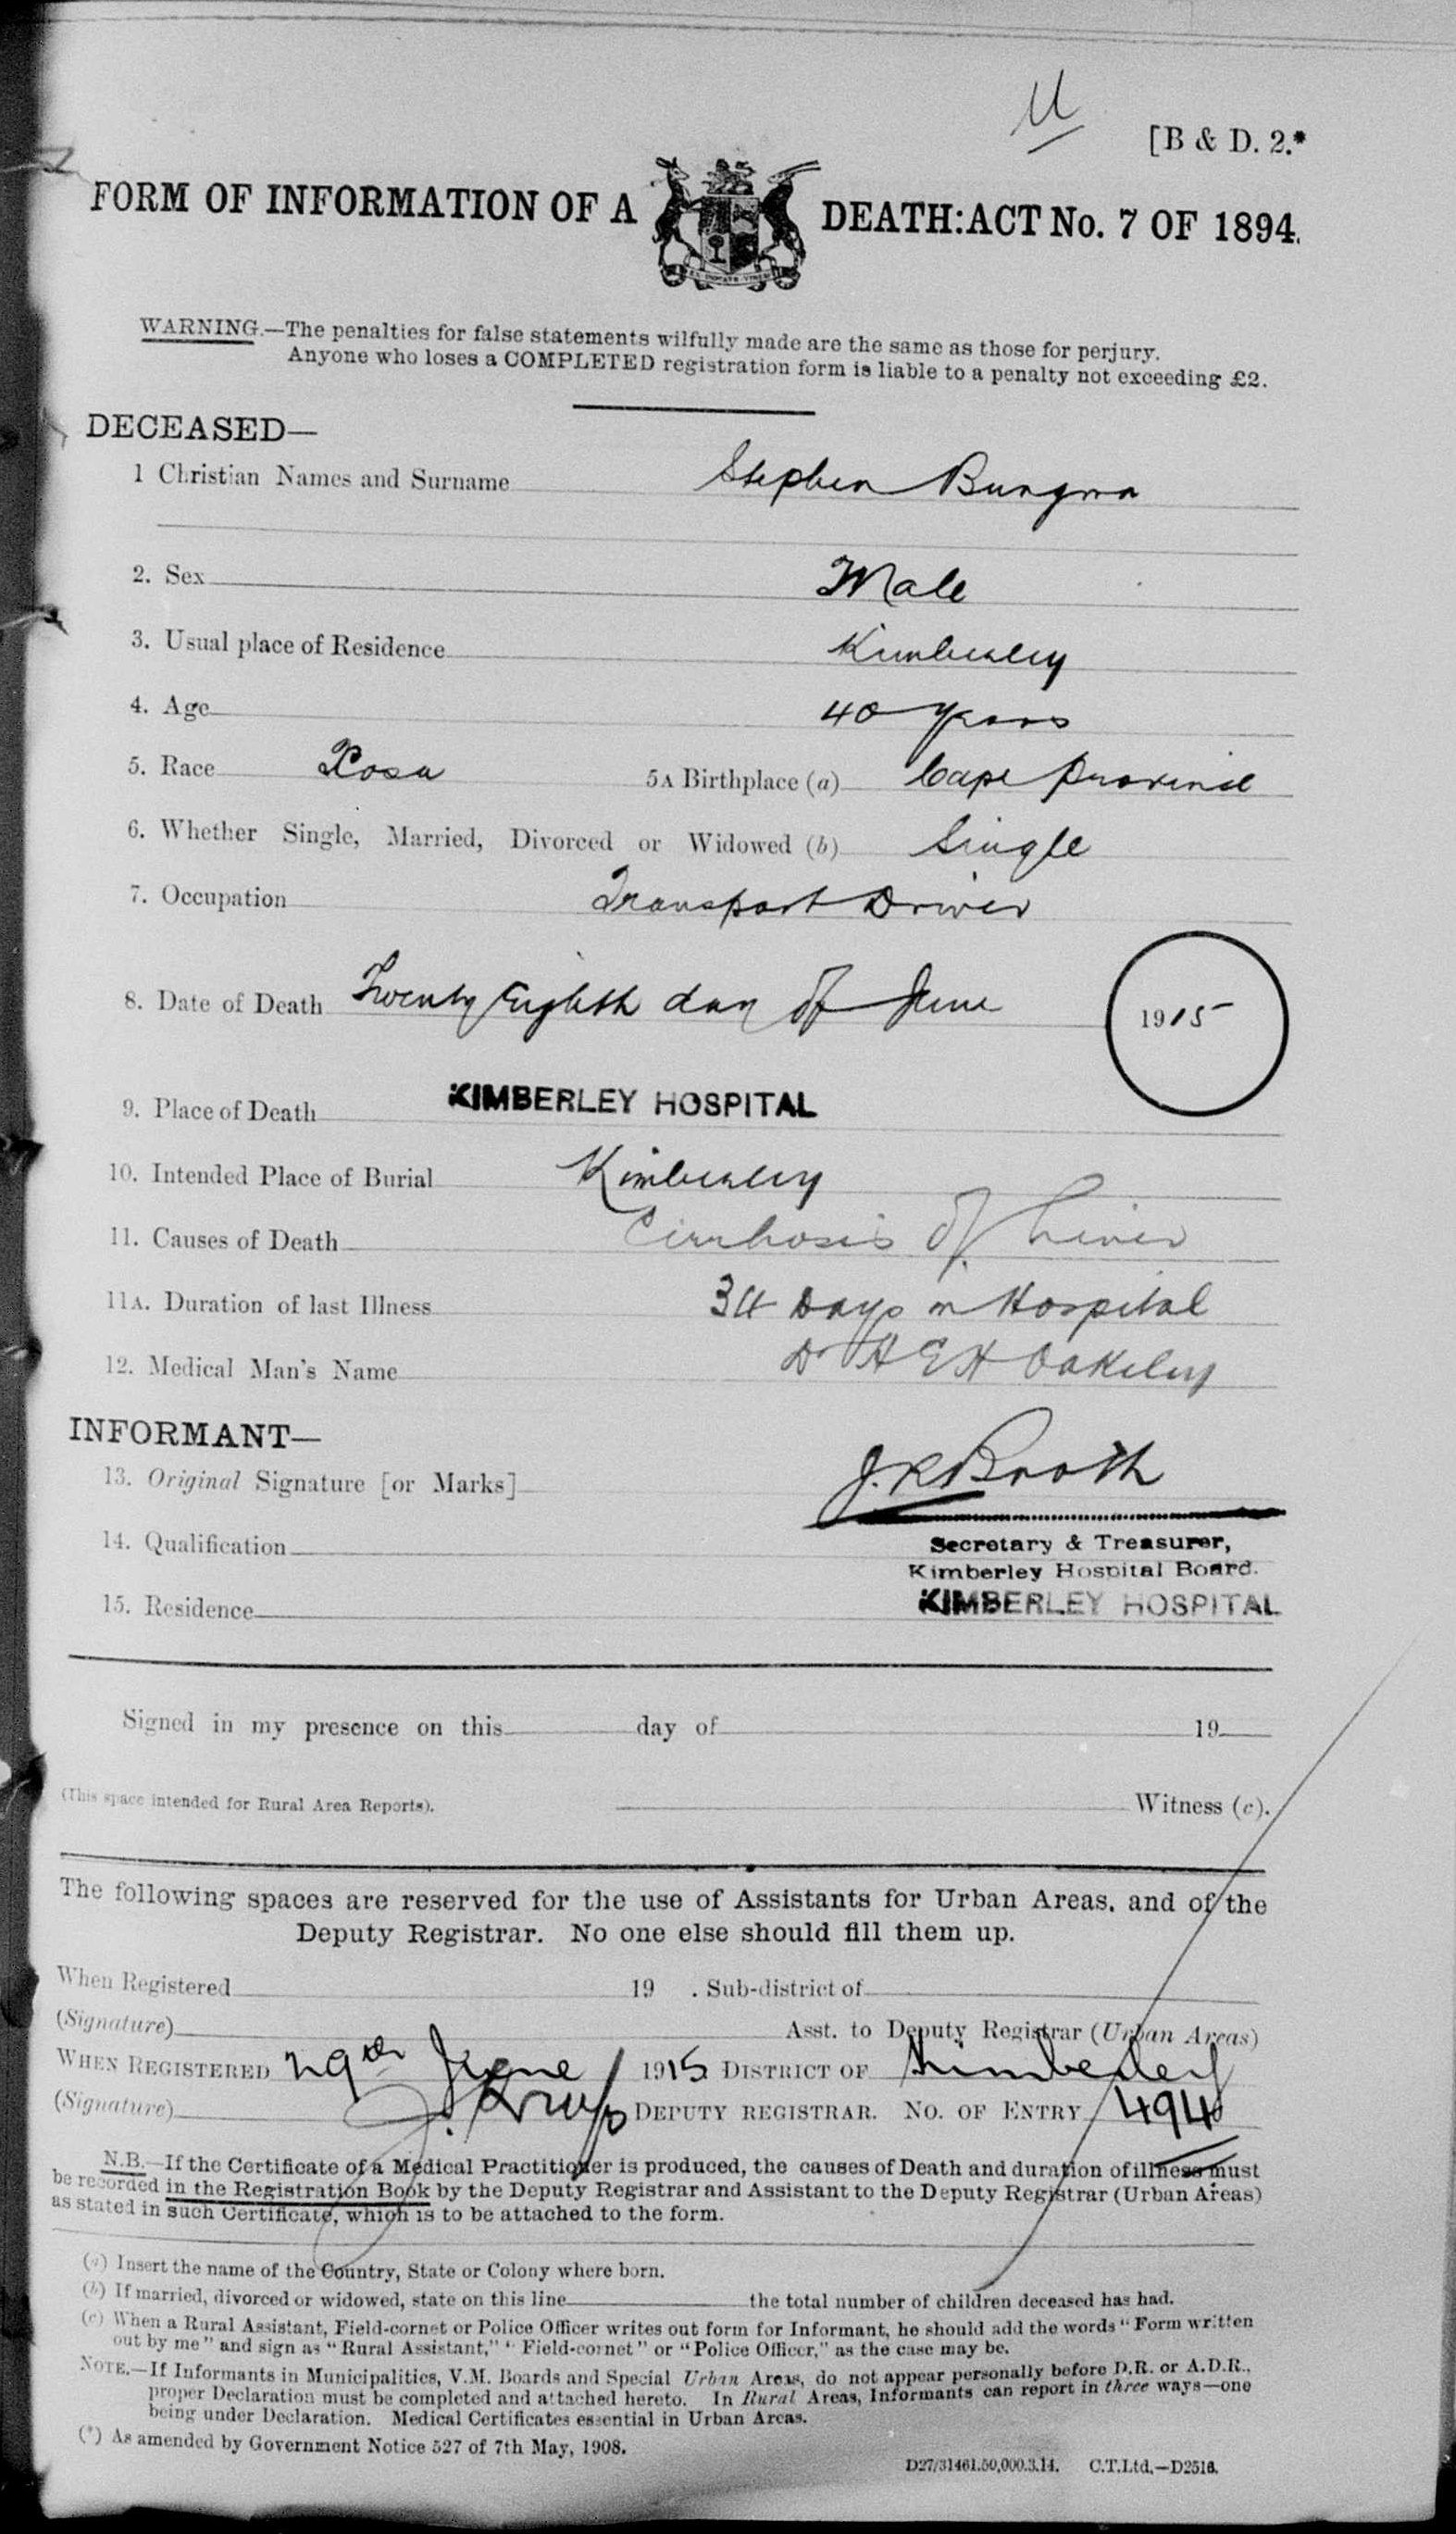 U
[B & D. 2.*
FORM OF INFORMATION OF A DEATH: ACT No. 7 OF 1894.
WARNING.—The penalties for false statements wilfully made are the same as those for perjury.
Anyone who loses a COMPLETED registration form is liable to a penalty not exceeding £2.
DECEASED—
1 Christian Names and Surname Stephen Bungwa
2. Sex Male
3. Usual place of Residence Kimberley
4. Age 40 years
5. Race Xosa 5A Birthplace (a) Cape Province
6. Whether Single, Married, Divorced or Widowed (b) Single
7. Occupation Transport Driver
8. Date of Death Twenty Eighth day of June 1915
9. Place of Death KIMBERLEY HOSPITAL
10. Intended Place of Burial Kimberley
11. Causes of Death Cirrhosis of Liver
11A. Duration of last Illness 34 Days in Hospital
12. Medical Man's Name Dr A E H Oakeley
INFORMANT—
13. Original Signature [or Marks] J. R Booth
14. Qualification Secretary & Treasurer,
Kimberley Hospital Board.
15. Residence KIMBERLEY HOSPITAL
Signed in my presence on this day of 19
(This space intended for Rural Area Reports). Witness (c).
The following spaces are reserved for the use of Assistants for Urban Areas, and of the
Deputy Registrar. No one else should fill them up.
When Registered 19 . Sub-district of
(Signature) Asst. to Deputy Registrar (Urban Areas)
WHEN REGISTERED 29th June 1915 DISTRICT OF Kimberley
(Signature) DEPUTY REGISTRAR. NO. OF ENTRY 494
N.B.—If the Certificate of a Medical Practitioner is produced, the causes of Death and duration of illness must
be recorded in the Registration Book by the Deputy Registrar and Assistant to the Deputy Registrar (Urban Areas)
as stated in such Certificate, which is to be attached to the form.
(a) Insert the name of the Country, State or Colony where born.
(b) If married, divorced or widowed, state on this line the total number of children deceased has had.
(c) When a Rural Assistant, Field-cornet or Police Officer writes out form for Informant, he should add the words "Form written
out by me" and sign as "Rural Assistant," "Field-cornet" or "Police Officer," as the case may be.
NOTE.—If Informants in Municipalities, V.M. Boards and Special Urban Areas, do not appear personally before D.R. or A.D.R.,
proper Declaration must be completed and attached hereto. In Rural Areas, Informants can report in three ways—one
being under Declaration. Medical Certificates essential in Urban Areas.
(*) As amended by Government Notice 527 of 7th May, 1908.
D27/31461.50,000.3.14. C.T.Ltd.—D2516.